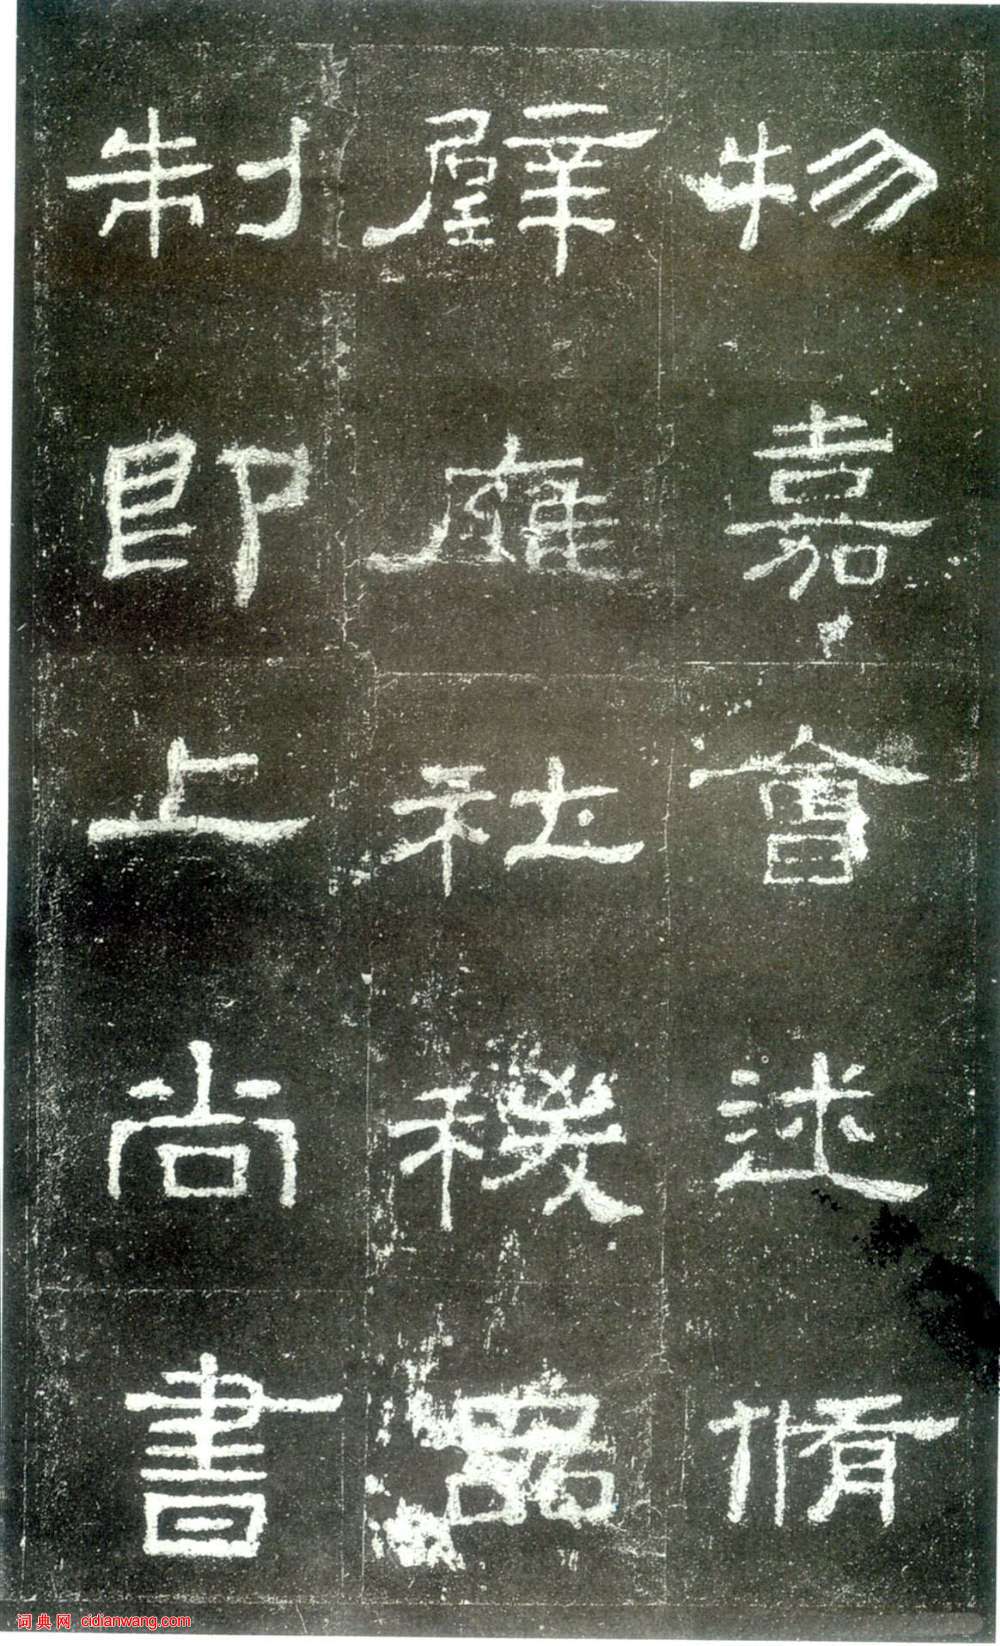 物嘉會述脩
辟雍社稷品
制即上尚書
词典网 cidianwang.com